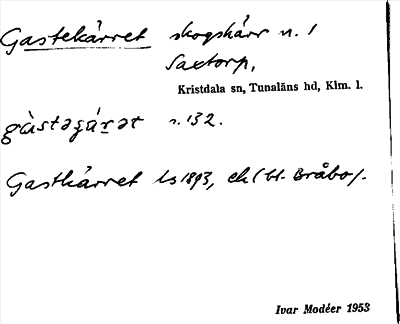 Gastekärret skogskärr n. 1
Saxtorp,
Kristdala sn, Tunaläns hd, Klm. l.
gàstəgá͟rət n. 132.
Gastkärret Ls 1893, ek (bl. Bråbo).
Ivar Modéer 1953